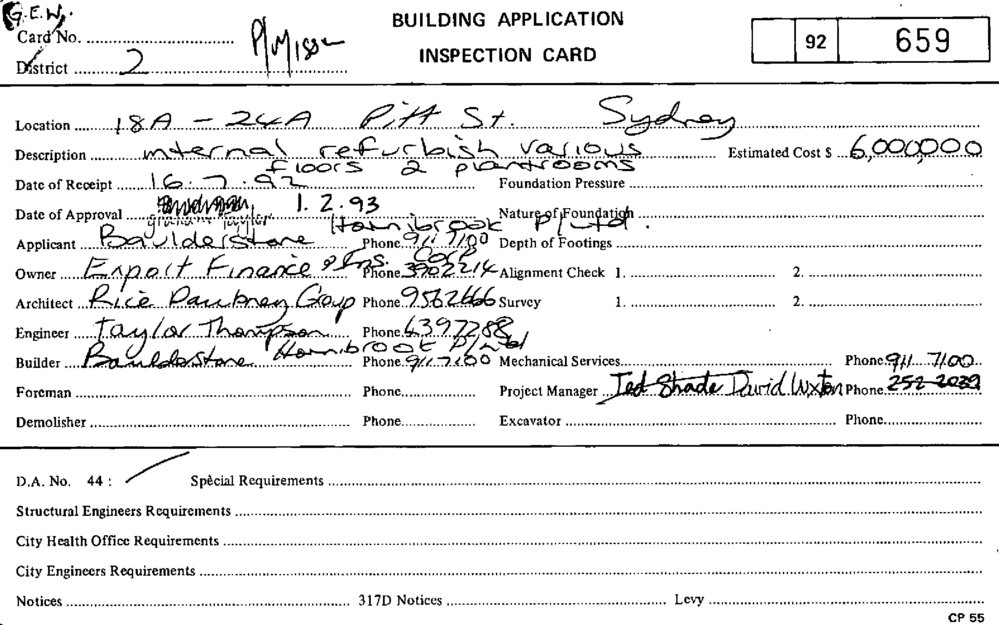 G.E.W.
BUILDING APPLICATION
INSPECTION CARD
92 659
Card No.
District 2
Location 18A - 24A Pitt St. Sydney
Description internal refurbish various floors & plantrooms Estimated Cost $ 6,000000
Date of Receipt 16.7.92 Foundation Pressure
Date of Approval 1.2.93 Nature of Foundation
Applicant Baulderstone Hornibrook P/Ltd. Phone 911 7100 Depth of Footings
Owner Export Finance & Ins. Corp Phone 3902214 Alignment Check 1. 2.
Architect Rice Daubney Group Phone 9562666 Survey 1. 2.
Engineer Taylor Thompson Phone 4397288
Builder Baulderstone Hornibrook P/Ltd Phone 911 7100 Mechanical Services Phone 911 7100
Foreman Phone Project Manager Ted Shade David Phone 252 2039
Demolisher Phone Excavator Phone
D.A. No. 44 : Special Requirements
Structural Engineers Requirements
City Health Office Requirements
City Engineers Requirements
Notices 317D Notices Levy
CP 55